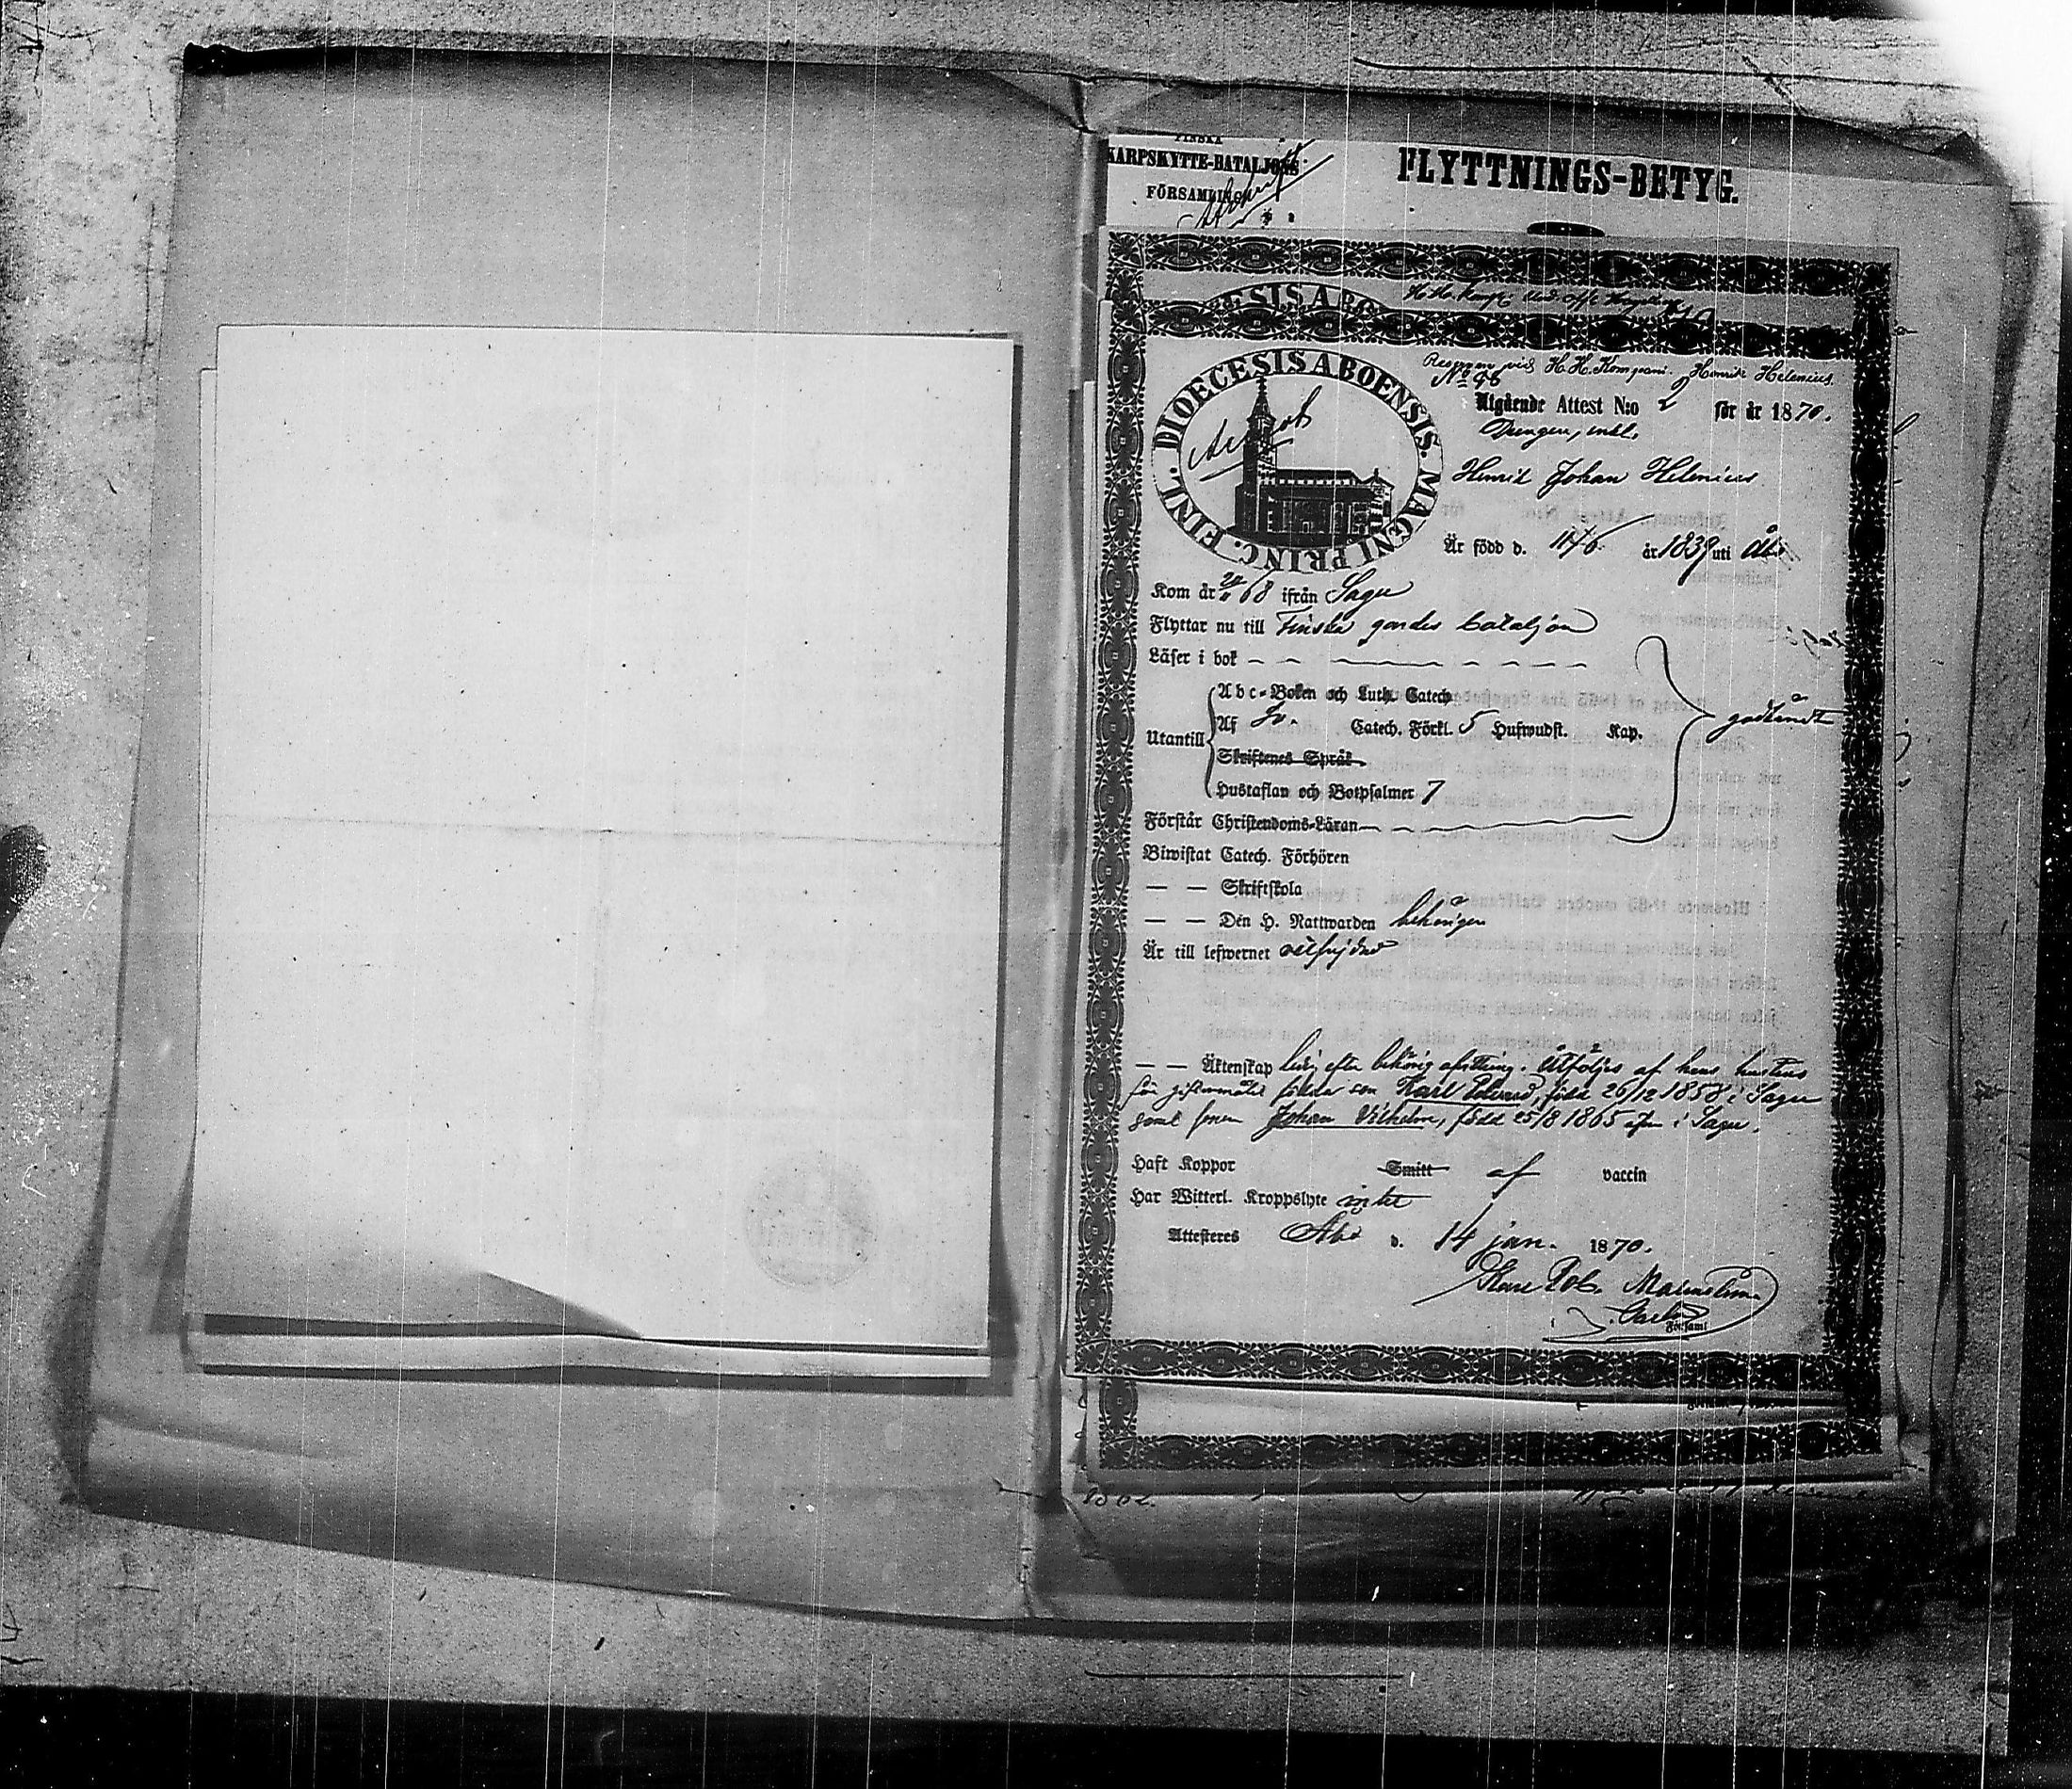 FINSKA
SKARPSKYTTE-BATALJONS
FÖRSAMLING
FLYTTNINGS-BETYG.
H. H. Komp.
DIOECESIS ABOENSIS. MAGNI PRINC. FINL.
vid H. H. Kompani. Henrik Helenius.
N:o 98
Utgående Attest N:o 2 för år 1870.
Drengen, inh.
Henrik Johan Helenius
Är född d. 11/6 år 1839 uti Åbo
Kom år 68 ifrån Sagu
Flyttar nu till Finska gardes bataljon
Läser i bok — — — — — —
Abc-Boken och Luth. Catech
Utantill Af Sv. Catech. Förkl. 5 Hufwudst. Kap. godkändt
Skriftenes Språk
Hustaflan och Botpsalmer 7
Förstår Christendoms-Läran — — —
Biwistat Catech. Förhören
— — Skriftskola
— — Den H. Nattwarden behörigen
Är till lefwernet välfrejdad
— — Äktenskap ledig efter behörig afvittring. Åtföljes af hans hustrus
för giftermålet födda son Karl Edvard, född 26/12 1858 i Sagu
samt sonen Johan Vilhelm, född 25/8 1865 äfven i Sagu.
Haft Koppor Smitt af vaccin
Har Witterl. Kroppslyte intet
Attesteres Åbo d. 14 jan. 1870.
Karl Rob. Malmström
Församl
1862.